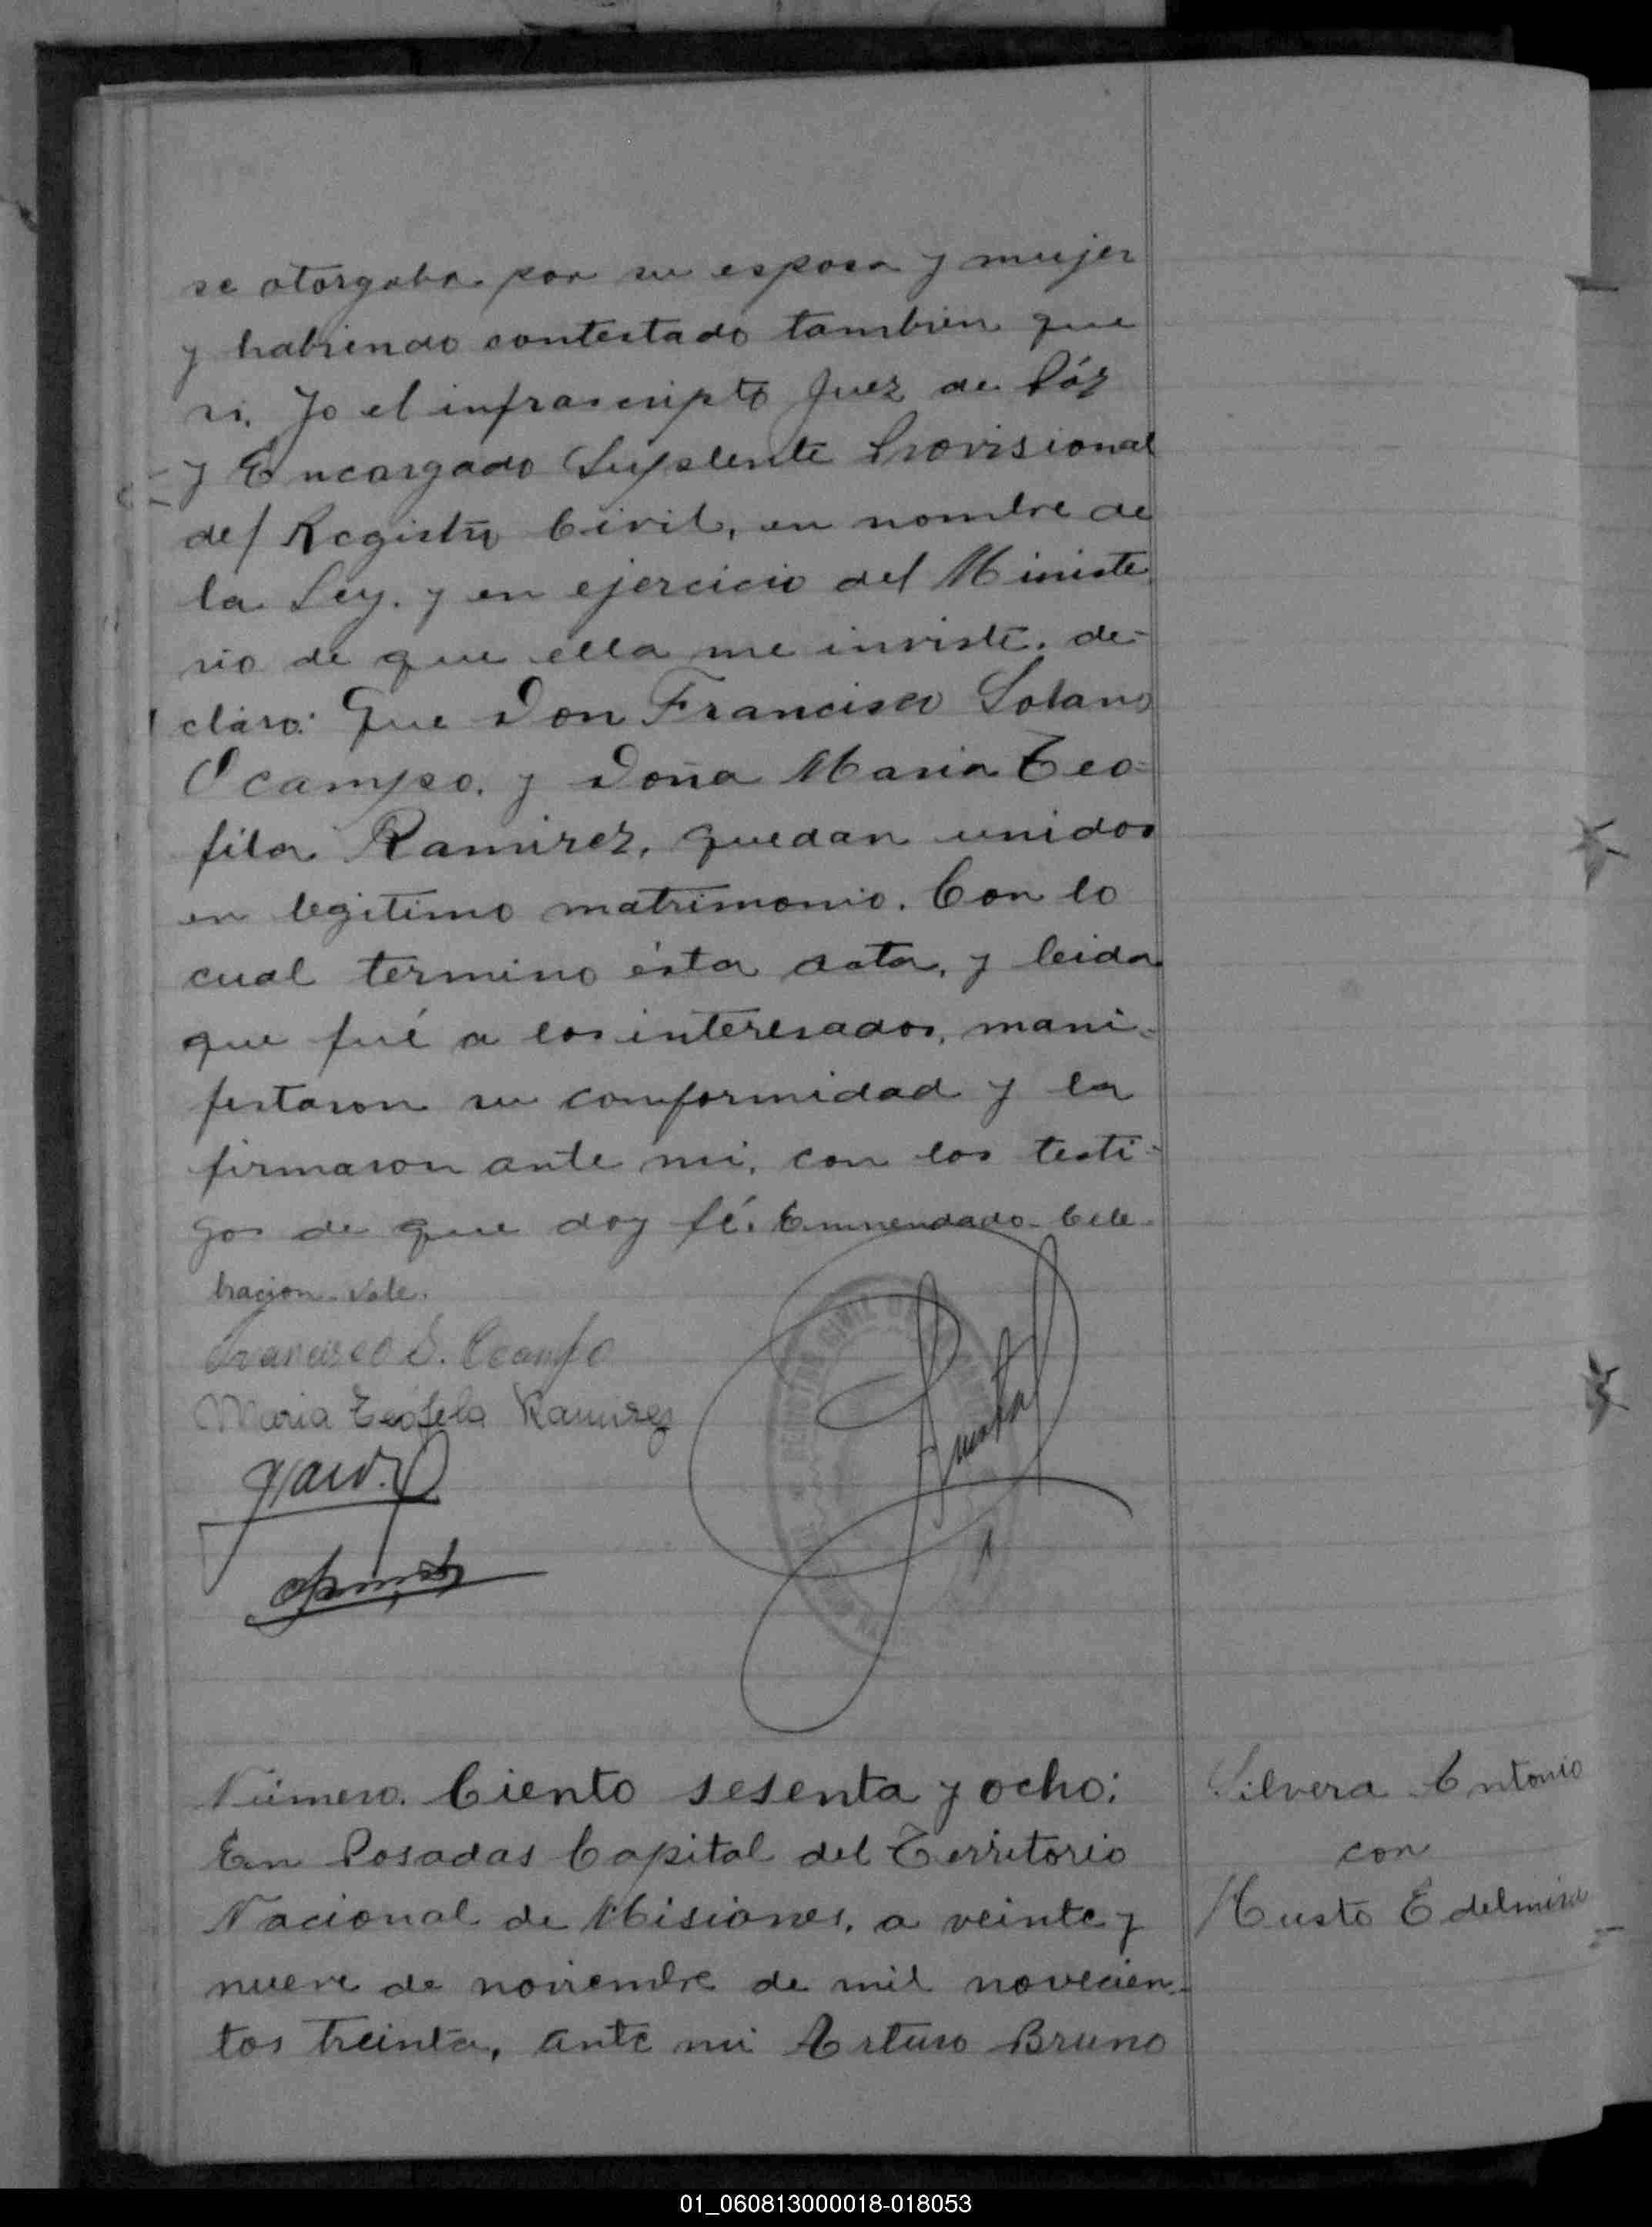 se otorgaba por su esposa y mujer
y habiendo contestado tambien que
si. Yo el infrascripto Juez de Páz
y Encargado Suplente Provisional
del Registro Civil, en nombre de
la Ley. y en ejercicio del Ministe
rio de que ella me inviste. de-
claro: Que Don Francisco Solano
Ocampo. y Doña Maria Teo-
fila Ramirez, quedan unidos
en legitimo matrimonio. Con lo
cual termino ésta acta, y leida
que fué a los interesados, mani-
festaron su conformidad y la
firmaron ante mi, con los testi-
gos de que doy fé. Enmendado- Cele-
bracion- Vale.
Francisco S. Ocampo
Maria Teofila Ramirez
REGISTRO CIVIL DE
Número. Ciento sesenta y ocho:
En Posadas Capital del Territorio
Nacional de Misiones, a veinte y
nueve de noviembre de mil novecien-
tos treinta, ante mi Arturo Bruno
Silvera Antonio
con
Musto Edelmira
01_060813000018-018053